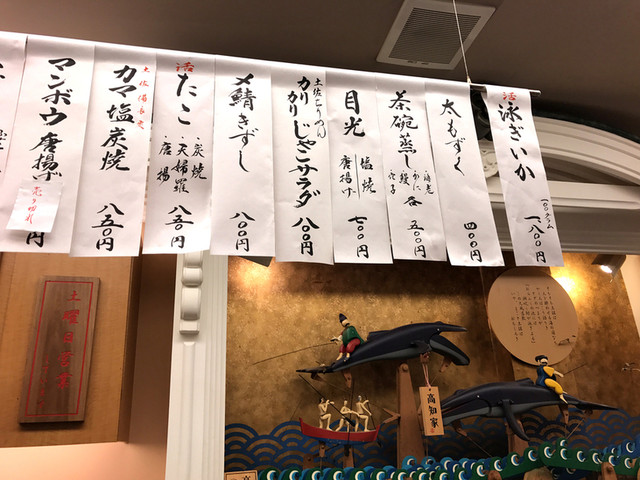 活
泳ぎいか
一〇〇グラム
一、八〇〇円
太もずく
四〇〇円
茶碗蒸し
海老
かに
鰻
穴子
各
五〇〇円
目光
塩焼
唐揚げ
七〇〇円
土佐ちりめん
カリカリじゃこサラダ
八〇〇円
〆鯖きずし
八〇〇円
活
たこ
・炭焼
・天婦羅
・唐揚
八五〇円
土佐備長炭
カマ塩炭焼
八五〇円
マンボウ唐揚げ
売り切れ
円
土曜日営業
高知家